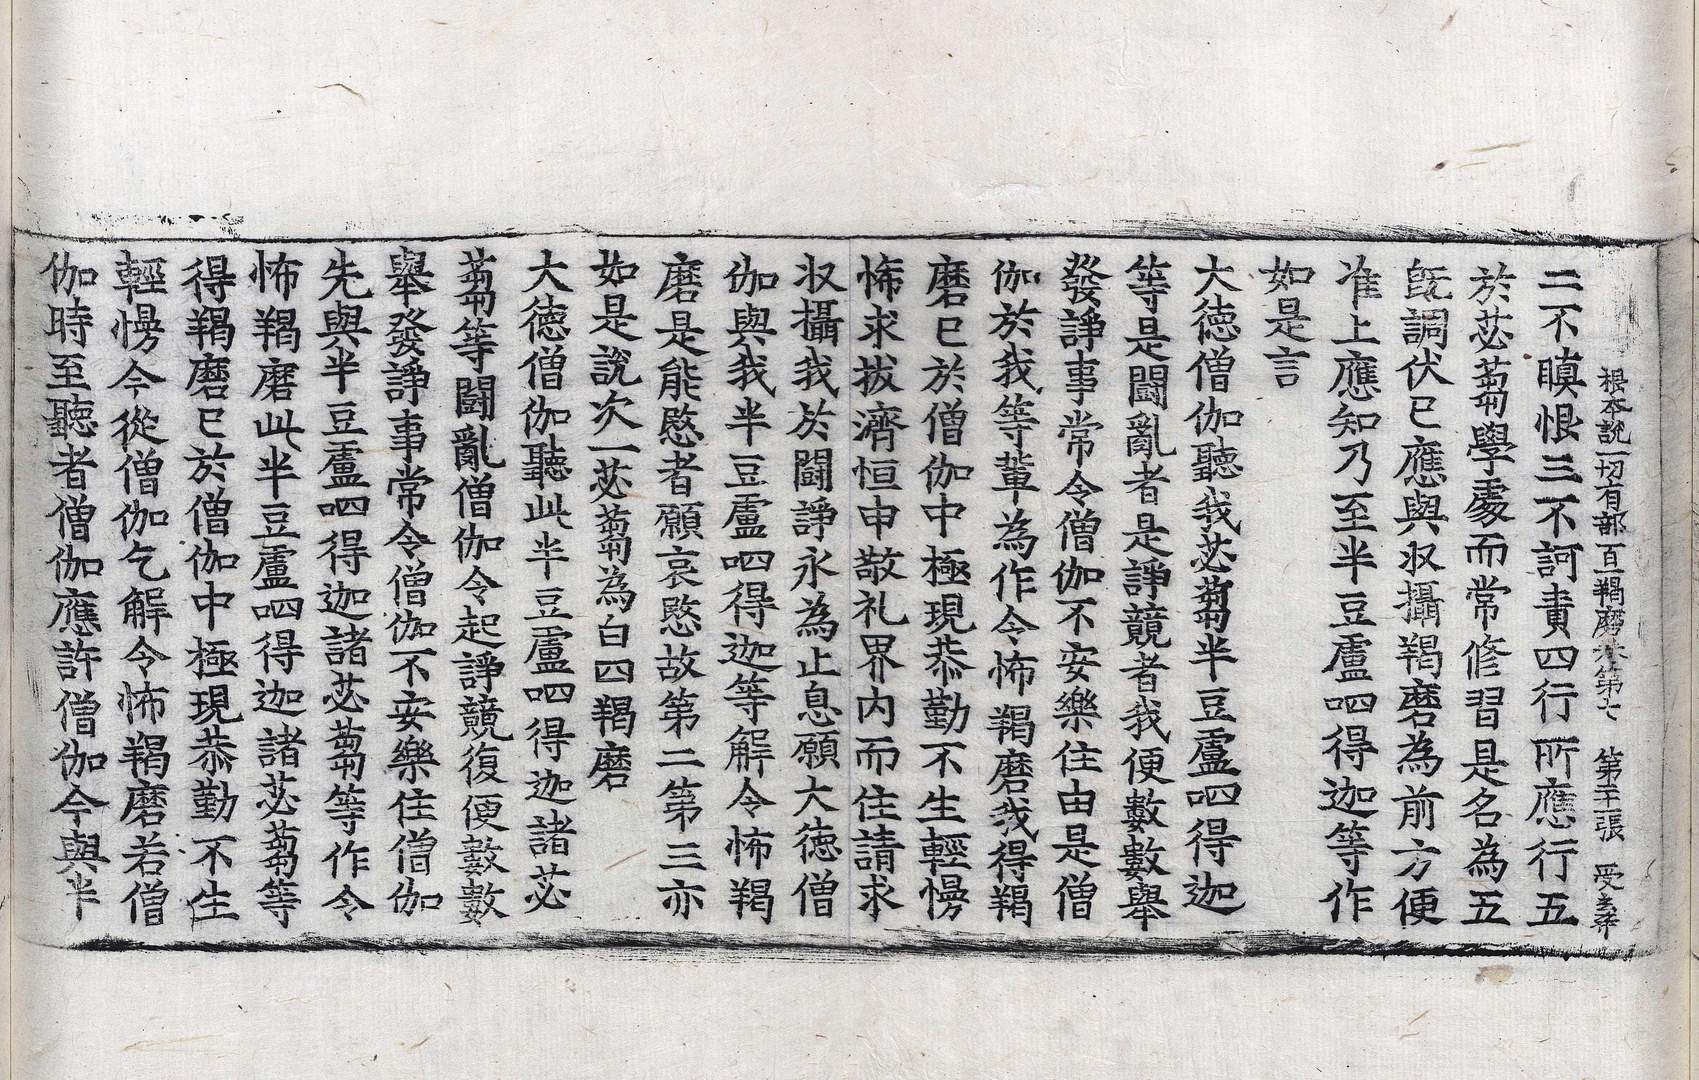 根夲說一切有部百一羯磨卷第七　第十二張　受
二不瞋恨三不訶責四行所應行五
於苾蒭學處而常修習是名為五
旣調伏已應與収攝羯磨為前方便
准上應知乃至半豆盧呬得迦等作
如是言
大德僧伽聽我苾蒭半豆盧呬得迦
等是鬪亂者是諍競者我便數數舉
發諍事常令僧伽不安樂住由是僧
伽於我等輩為作令怖羯磨我得羯
磨已於僧伽中極現恭勤不生輕慢
悕求拔濟恒申敬礼界內而住請求
収攝我於鬪諍永為止息願大德僧
伽與我半豆盧呬得迦等解令怖羯
磨是能愍者願哀愍故第二第三亦
如是說次一苾蒭為白四羯磨
大德僧伽聽此半豆盧呬得迦諸苾
蒭等鬪亂僧伽令起諍競復便數數
舉發諍事常令僧伽不安樂住僧伽
先與半豆盧呬得迦諸苾蒭等作令
怖羯磨此半豆盧呬得迦諸苾蒭等
得羯磨已於僧伽中極現恭勤不生
輕慢今從僧伽乞解令怖羯磨若僧
伽時至聽者僧伽應許僧伽今與半